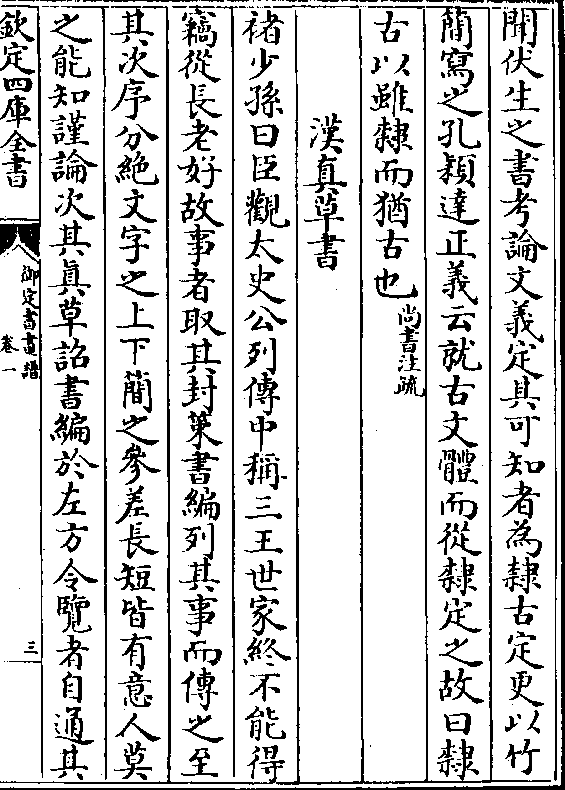 聞伏生之書考論文義定其可知者為隸古定更以竹
簡寫之孔穎達正義云就古文體而從隸定之故曰隸
古以雖隸而猶古也尚書注疏
漢真草書
褚少孫曰臣觀太史公列傳中稱三王世家終不能得
竊從長老好故事者取其封策書編列其事而傳之至
其次序分絶文字之上下簡之參差長短皆有意人莫
之能知謹論次其真草詔書編於左方令覽者自通其
欽定四庫全書
御定書畫譜
卷一
三